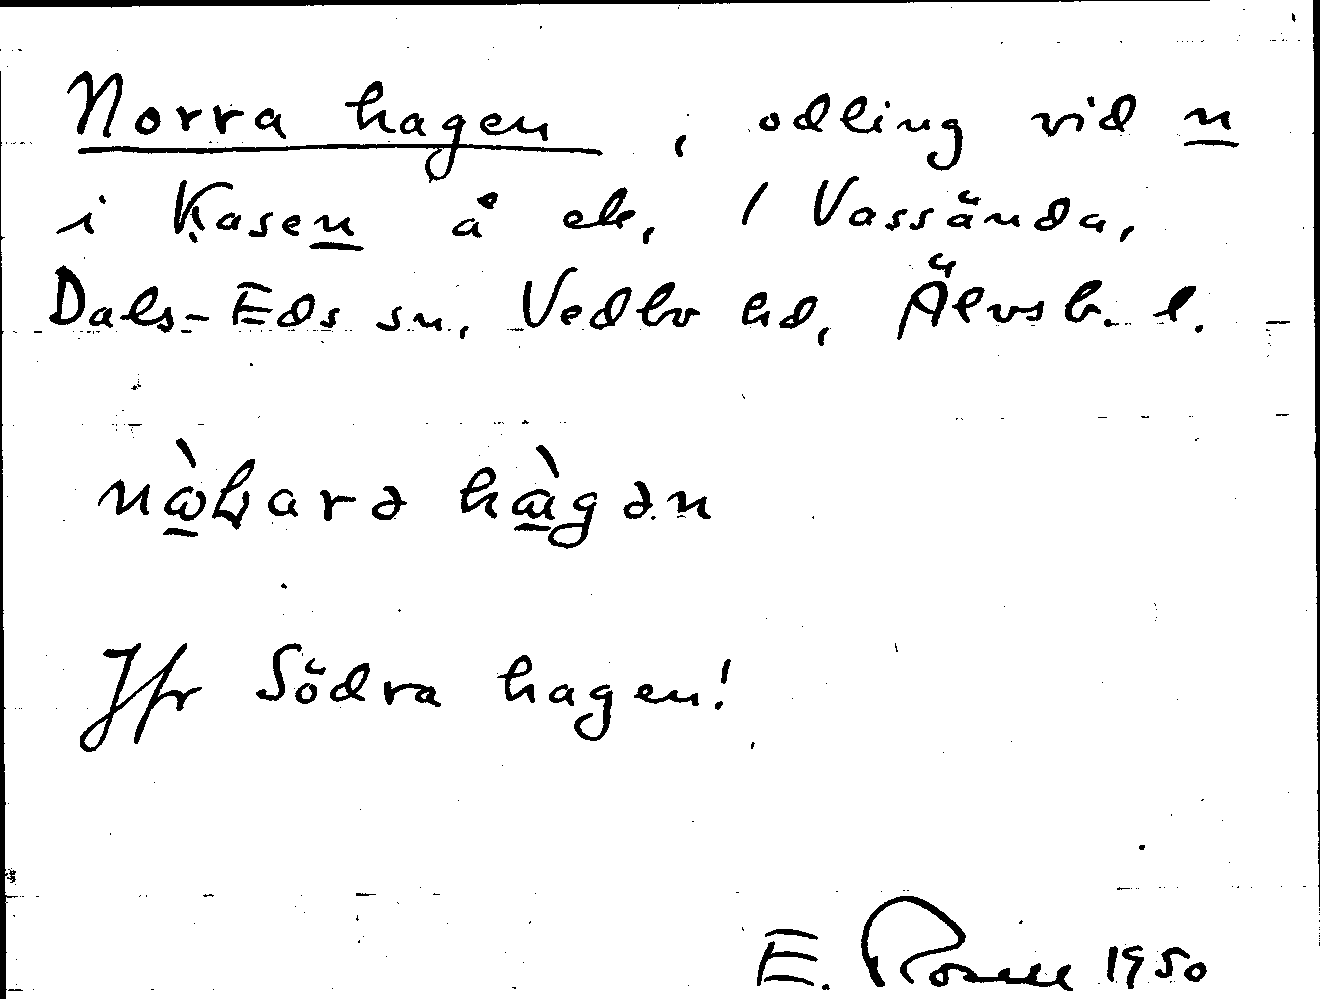 Norra hagen, odling vid n
i Kasen å ek, 1 Vassända,
Dals-Eds sn, Vedbo hd, Älvsb. l.
hagən
Jfr Södra hagen!
E. Rosell 1950